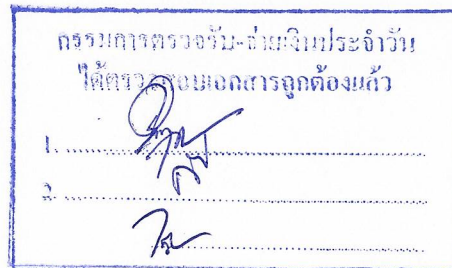 กรรมการตรวจรับ-จ่ายเงินประจำวัน
ได้ตรวจสอบเอกสารถูกต้องแล้ว
1. ........................................
2. ........................................